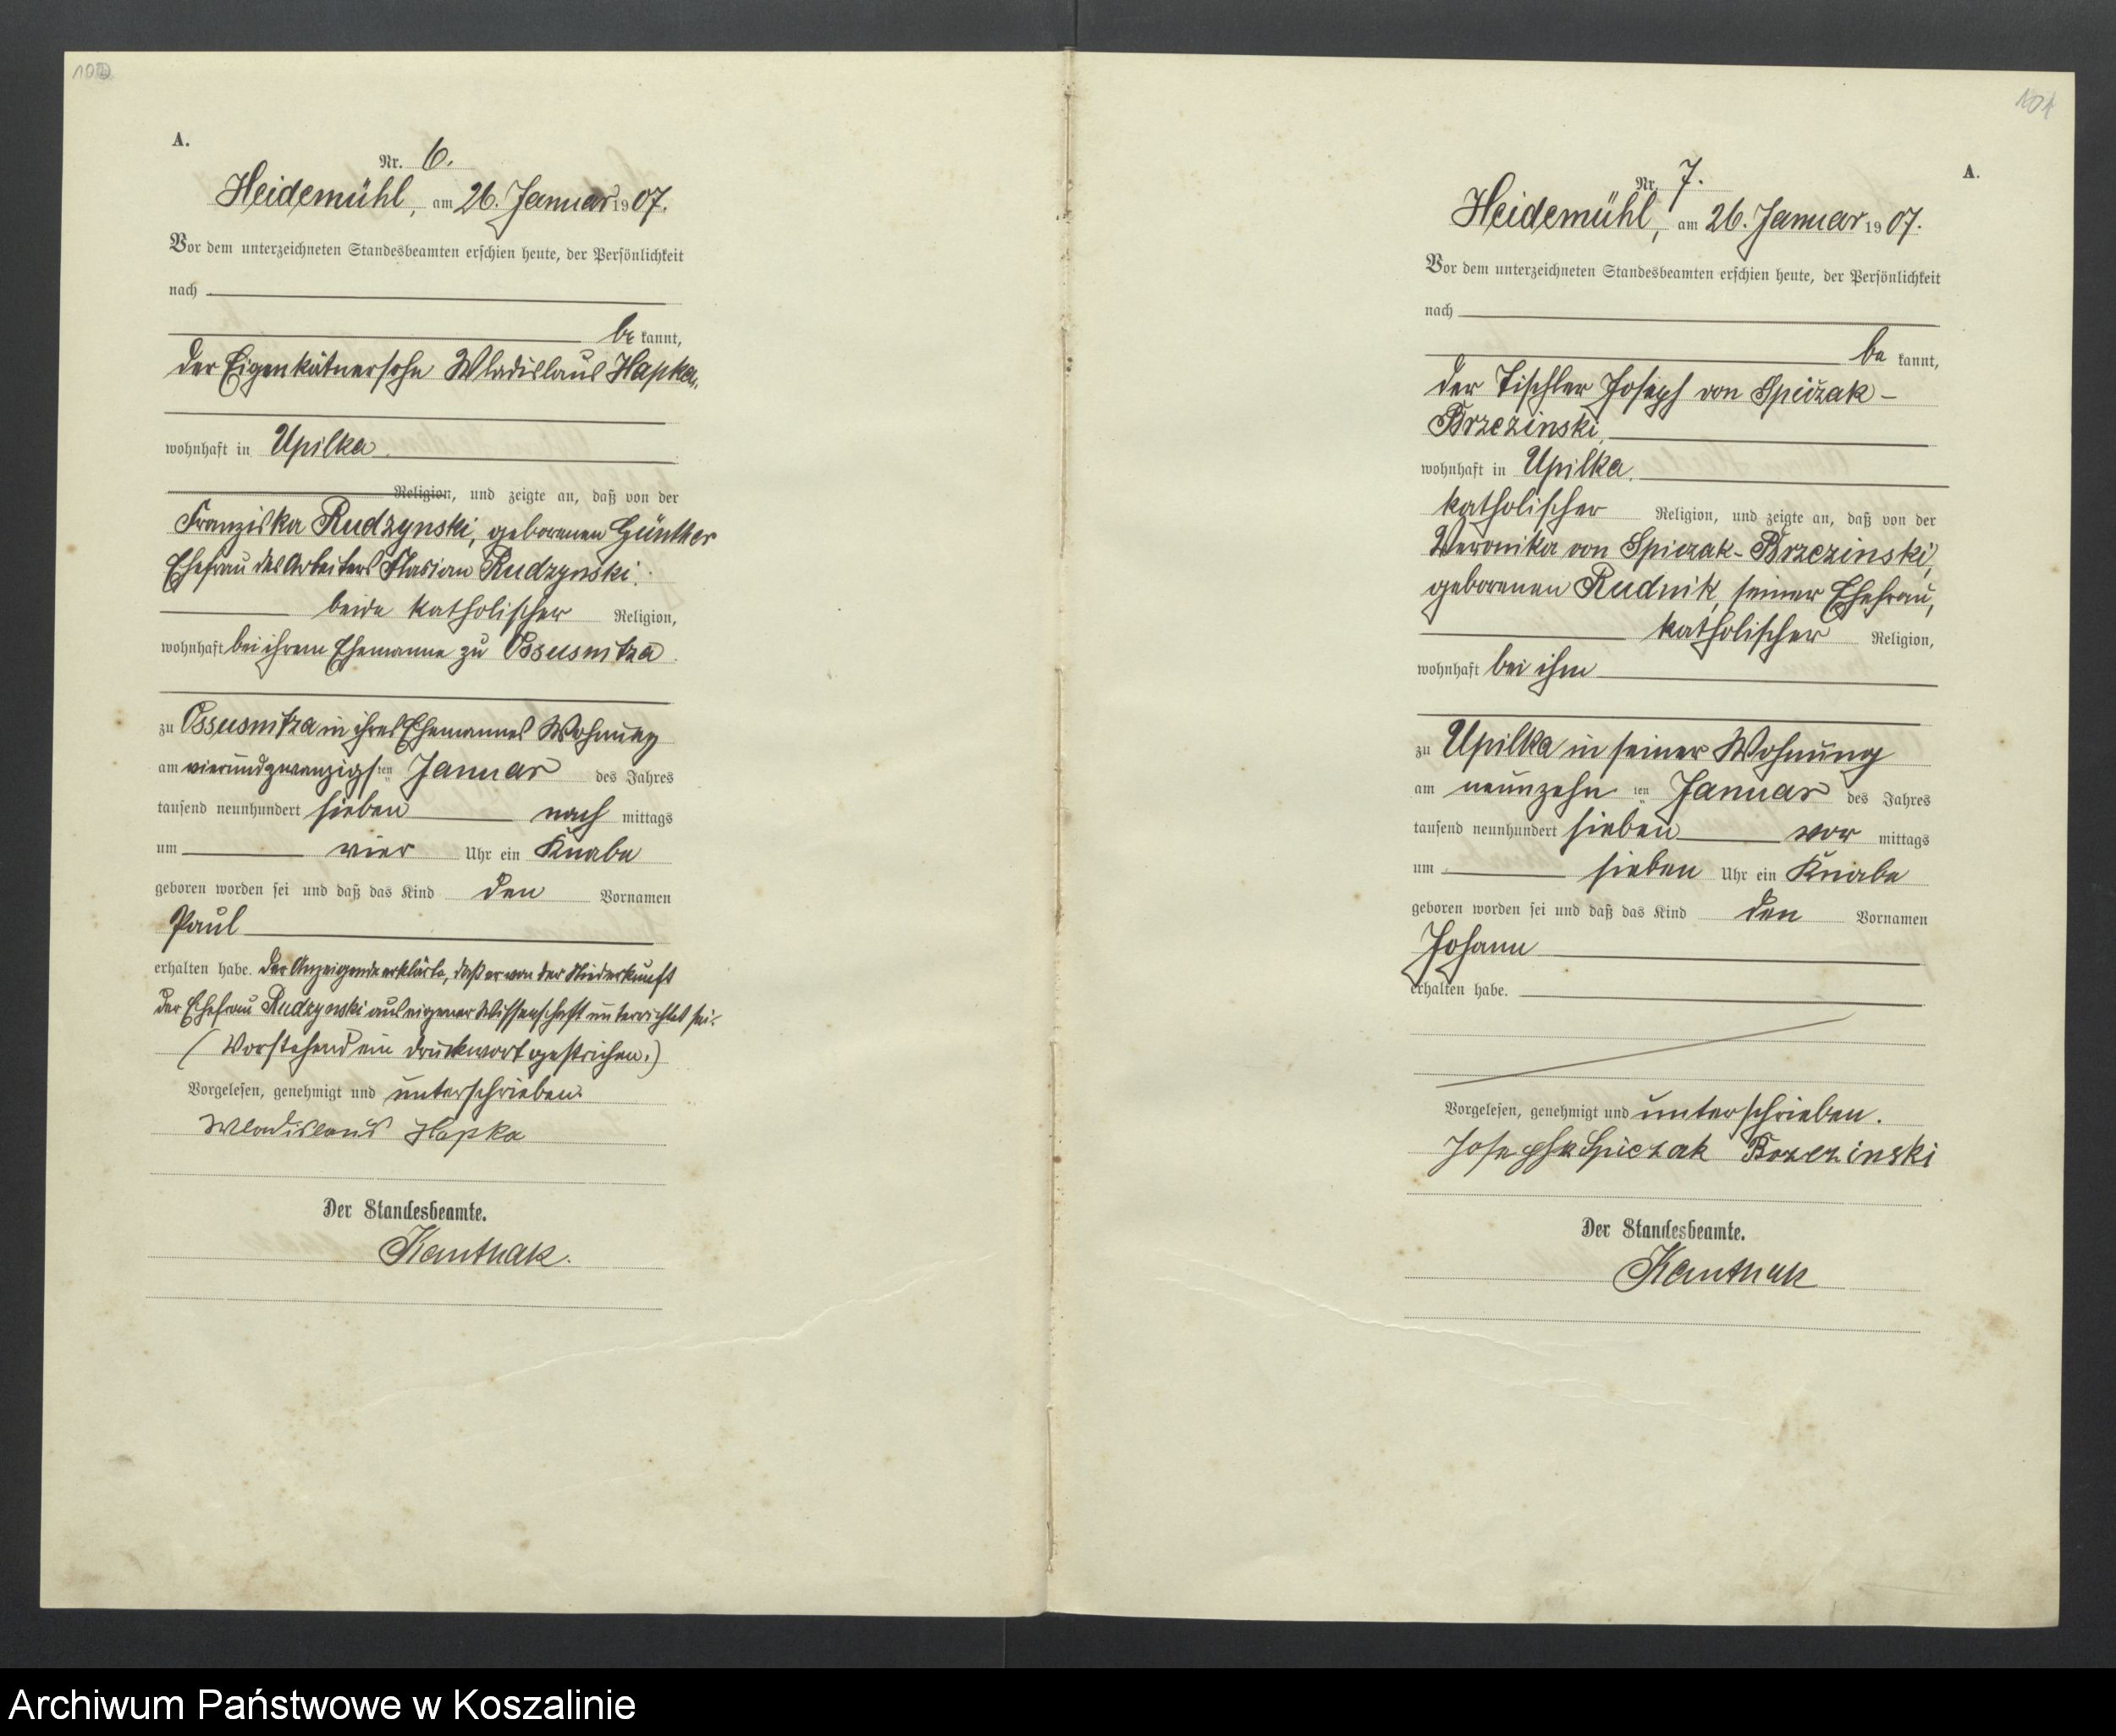 A.
Nr. 6.
Heidemühl, am 26. Januar 1907.
Vor dem unterzeichneten Standesbeamten erschien heute, der Persönlichkeit
nach
be kannt,
der Eigenkätnersohn Wladislaus Hapka,
wohnhaft in Upilka
Religion, und zeigte an, daß von der
Franziska Rudzynski, geborenen Günther
Ehefrau des Arbeiters Rudzynski.
beide katholischer Religion,
wohnhaft bei ihrem Ehemanne zu Ossusnitza
zu Ossusnitza in ihres Ehemannes Wohnung
am vierundzwanzigsten Januar des Jahres
tausend neunhundert sieben nach mittags
um vier Uhr ein Knabe
geboren worden sei und daß das Kind den Vornamen
Paul
erhalten habe. Der Anzeigende erklärte, daß er von der Niederkunft
der Ehefrau Rudzynski aus eigener Wissenschaft unterrichtet sei.
(Vorstehend ein Druckwort gestrichen.)
Vorgelesen, genehmigt und unterschrieben.
Wladislaus Hapka
Der Standesbeamte.
Kanthak.
101
A.
Nr. 7.
Heidemühl, am 26. Januar 1907.
Vor dem unterzeichneten Standesbeamten erschien heute, der Persönlichkeit
nach
be kannt,
der Tischler Joseph von Spiczak-
Brzezinski,
wohnhaft in Upilka.
katholischer Religion, und zeigte an, daß von der
Veronika von Spiczak-Brzezinski,
geborenen Rudnik, seiner Ehefrau,
katholischer Religion,
wohnhaft bei ihm
zu Upilka in seiner Wohnung
am neunzehn ten Januar des Jahres
tausend neunhundert sieben vor mittags
um sieben Uhr ein Knabe
geboren worden sei und daß das Kind den Vornamen
Johann
erhalten habe.
Vorgelesen, genehmigt und unterschrieben.
Joseph v Spiczak Brzezinski
Der Standesbeamte.
Kanthak
Archiwum Państwowe w Koszalinie